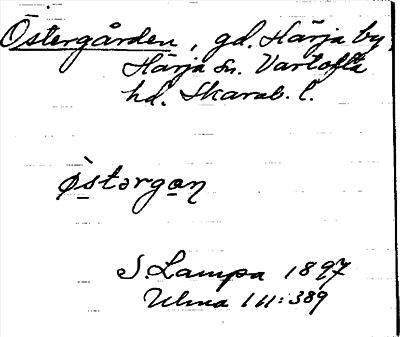 Östergården, gd. Härja by,
Härja sn. Vartofta
hd. Skarab. l.
ø̀stərgɑn̥
S. Lampa 1897
Ulma 111:389